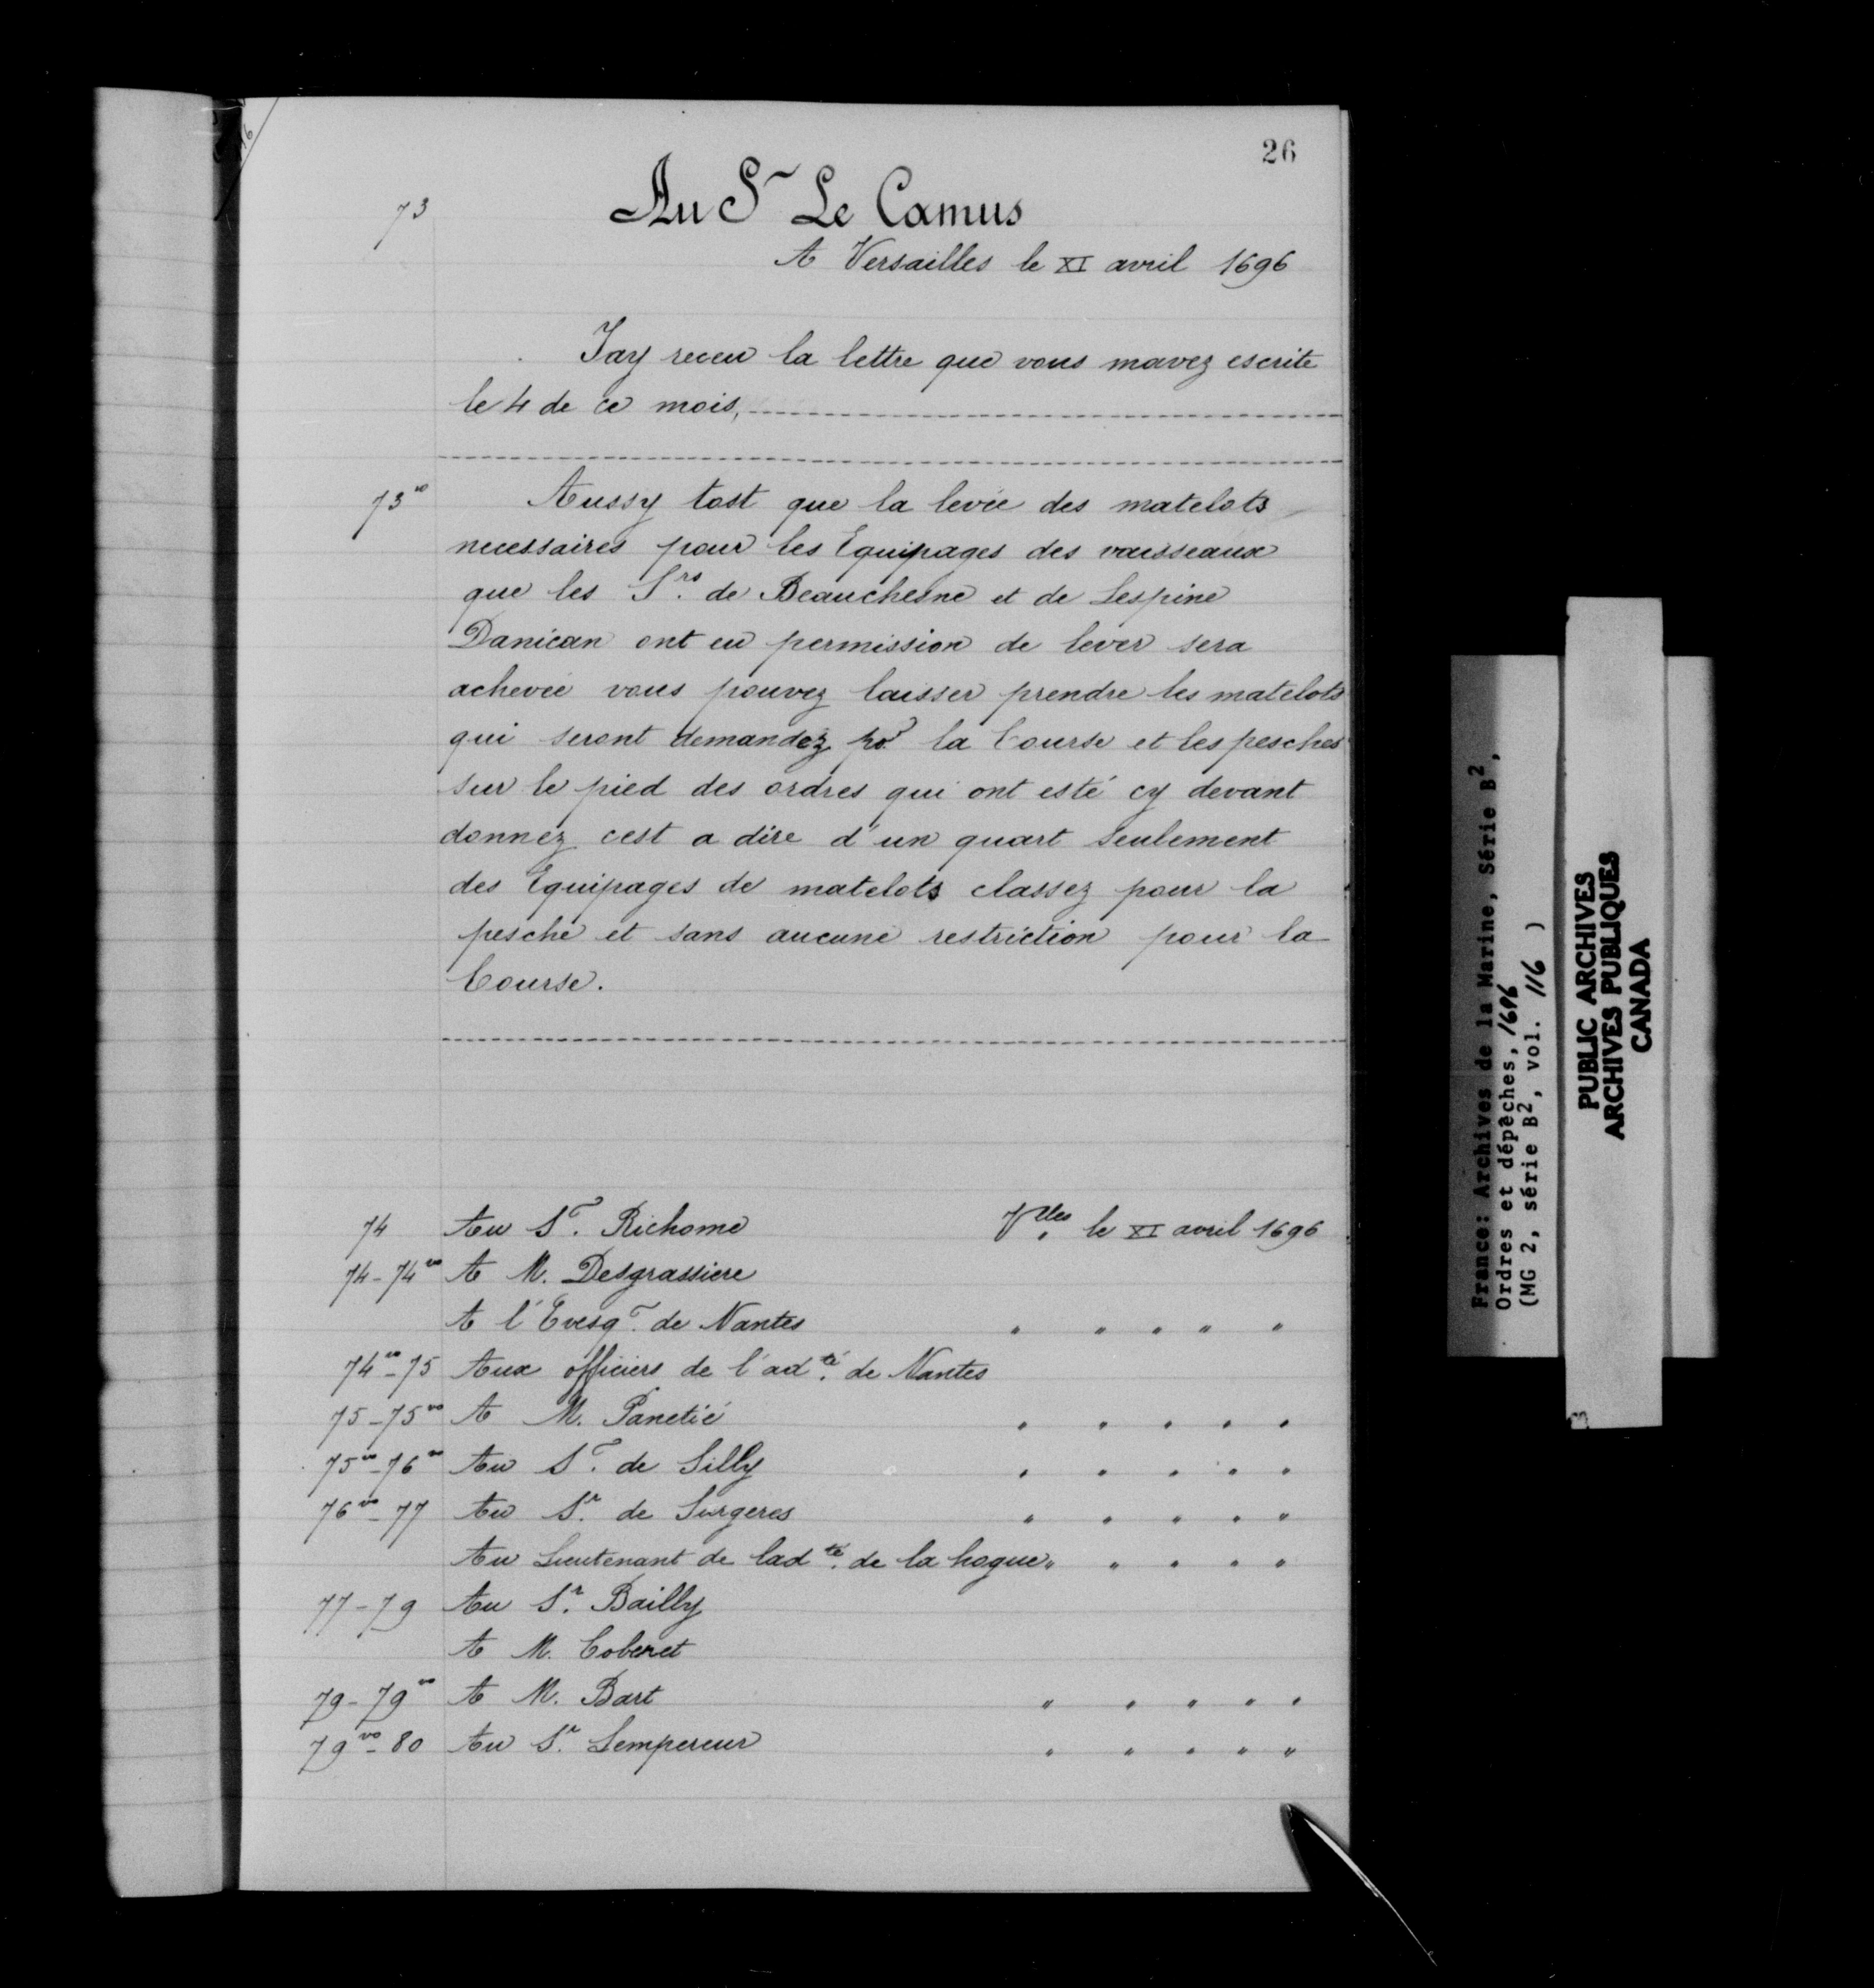 26
73 Au Sr Le Camus
A Versailles le XI avril 1696
Jay receu la lettre que vous mavez escrite
le 4 de ce mois,
73vo Aussy tost que la levée des matelots
necessaires pour les Equipages des vaisseaux
que les Srs. de Beauchesne et de Lespine
Danican ont eu permission de lever sera
achevée vous pouvez laisser prendre les matelots
qui seront demandez por la Course et les pesches
sur le pied des ordres qui ont esté cy devant
donnez cest a dire d'un quart seulement
des Equipages de matelots classez pour la
pesche et sans aucune restriction pour la
Course.
74 Au Sr. Richome Vlles. le XI avril 1696
74-74vo A M. Desgrassiere
A l'Evesqe. de Nantes " " " " "
74vo-75 Aux officiers de l'adté. de Nantes
75-75vo A M. Panetié " " " " "
75vo-76vo Au Sr. de Silly " " " " "
76vo-77 Au Sr. de Surgeres " " " " "
Au Lieutenant de ladté. de la hogue " " " " "
77-79 Au Sr. Bailly
A M. Coberet
79-79vo A M. Bart " " " " "
79vo-80 Au Sr. Lempereur " " " " "
France: Archives de la Marine, Série B2,
Ordres et dépêches, 1696
(MG 2, série B2, vol. 116 )
PUBLIC ARCHIVES
ARCHIVES PUBLIQUES
CANADA